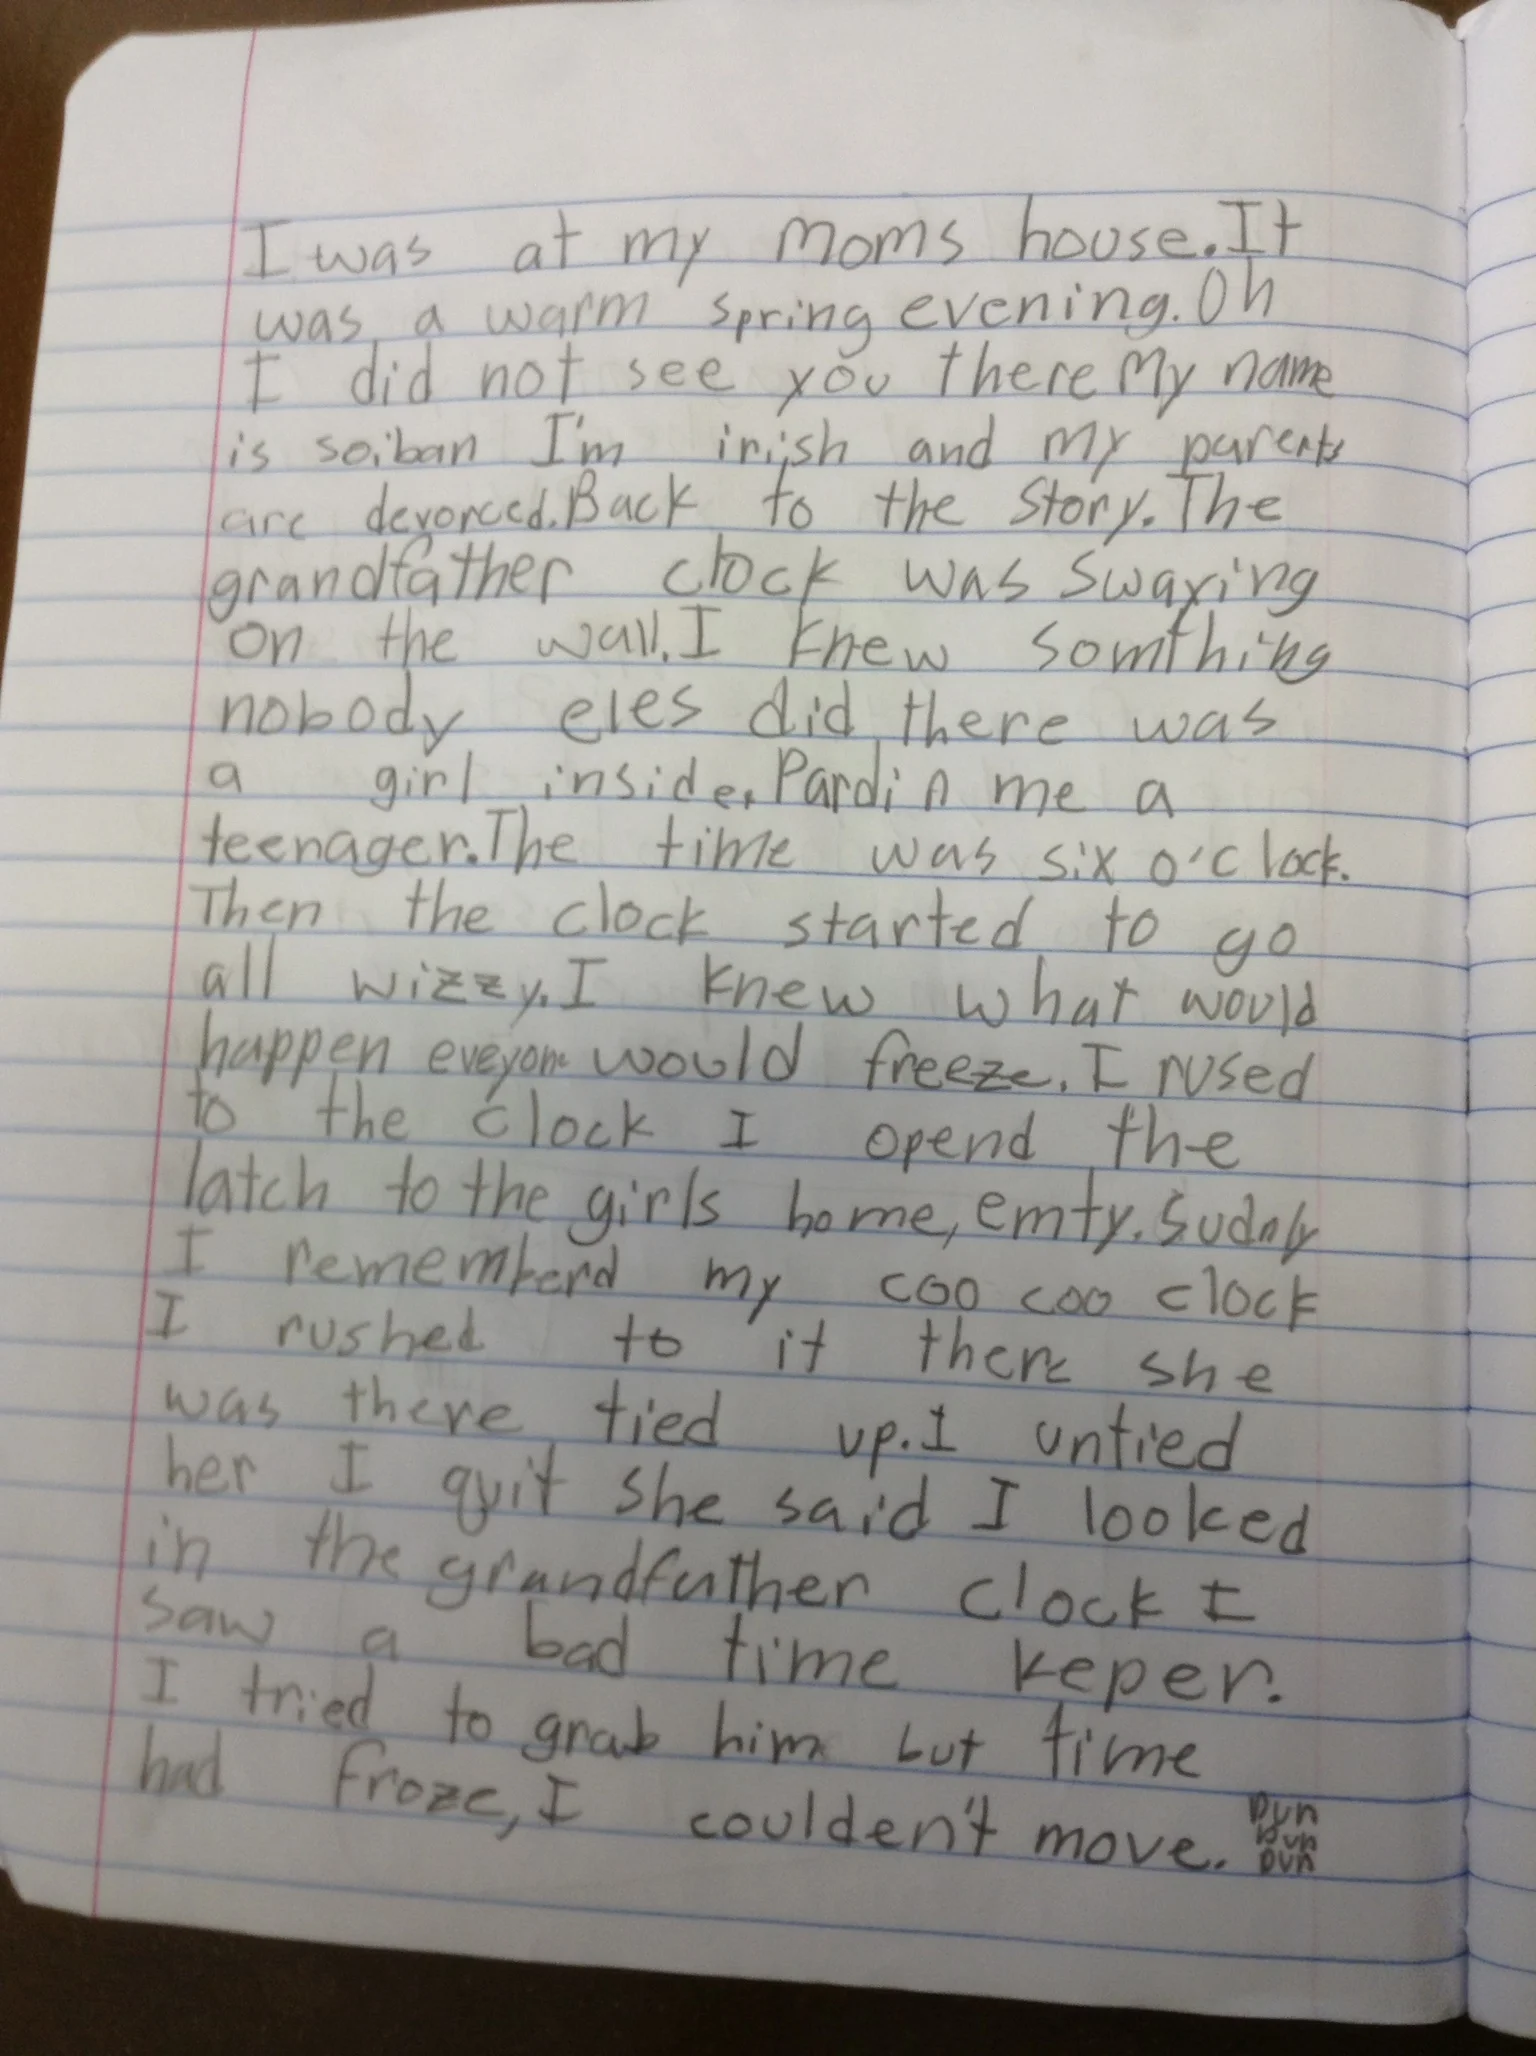 I was at my moms house. It
was a warm spring evening. Oh
I did not see you there My name
is soiban I'm irish and my parents
are devorced. Back to the Story. The
grandfather clock was swaying
on the wall. I knew somthing
nobody eles did there was
a girl inside. Pardin me a
teenager. The time was six o'clock.
Then the clock started to go
all wizzy. I knew what would
happen eveyone would freeze. I rused
to the clock I opend the
latch to the girls home, emty. Sudnly
I rememberd my coo coo clock
I rushed to it there she
was there tied up. I untied
her I quit she said I looked
in the grandfather clock I
saw a bad time keper.
I tried to grab him but time
had froze, I coulden't move. Dun
Dun
Dun